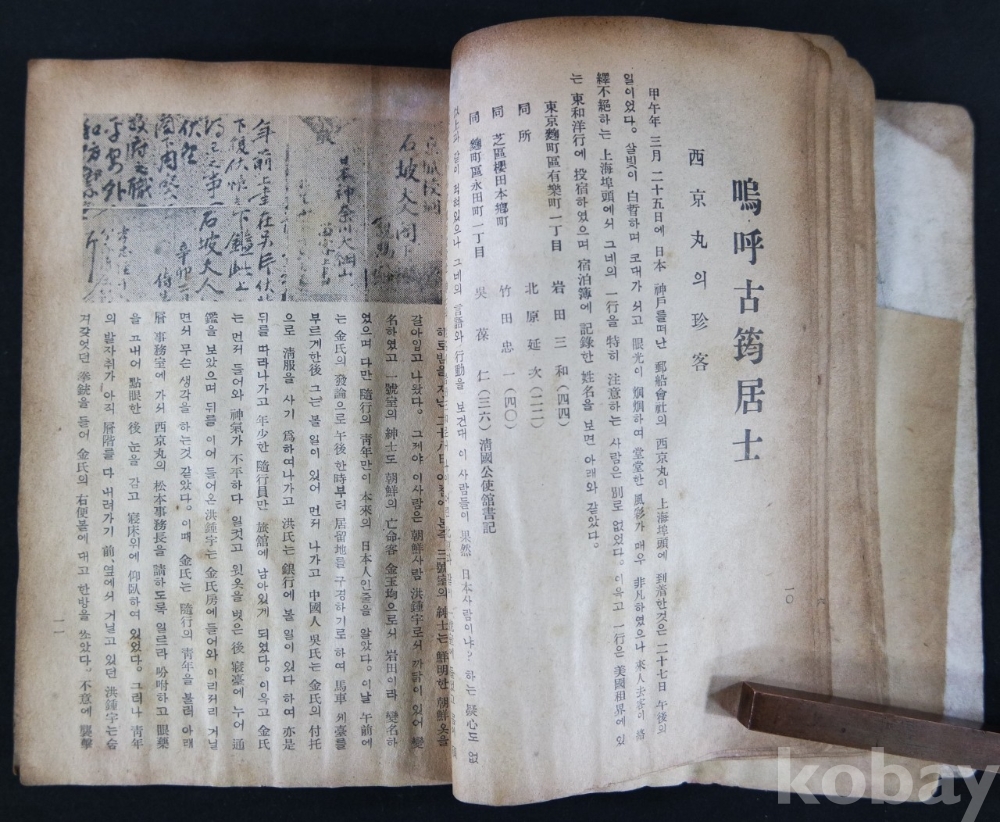 嗚呼古筠居士
西京丸의 珍客
甲午年 三月 二十五日에 日本 神戶를떠난 郵船會社의 西京丸이 上海埠頭에 到着한것은 二十七日 午後의
일이었다. 살빛이 白晳하며 코대가 서고 眼光이 烱烱하여 堂堂한 風彩가 매우 非凡하였으나 來人去客이 絡
繹不絕하는 上海埠頭에서 그네의 一行을 特히 注意하는 사람은 別로 없었다. 이윽고 一行은 美國租界에 있
는 東和洋行에 投宿하였으며 宿泊簿에 記錄한 姓名을 보면 아래와 같았다.
東京麴町區有樂町一丁目 岩田三和(四四)
同所 北原延次(二二)
同 芝區櫻田本鄉町 竹田忠一(四〇)
同 麴町區永田町一丁目 吳葆仁(三六)淸國公使館書記
같이 적혀있으나 그네의 言語와 行動을 보건대 이 사람들이 果然 日本사람이냐? 하는 疑心도 없
一〇
三號室의 紳士는 鮮明한 朝鮮옷을
갈아입고 나왔다. 그제야 이사람은 朝鮮사람 洪鍾宇로서 까닭이 있어 變
名하였고 一號室의 紳士도 朝鮮의 亡命客 金玉均으로서 岩田이라 變名하
였으며 다만 隨行의 靑年만이 本來의 日本人인줄을 알았다. 이날 午前에
는 金氏의 發論으로 午後 한時부터 居留地를 구경하기로 하여 馬車 세臺를
부르게한後 그는 볼 일이 있어 먼저 나가고 中國人 吳氏는 金氏의 付托
으로 淸服을 사기 爲하여나가고 洪氏는 銀行에 볼 일이 있다 하여 亦是
뒤를 따라나가고 年少한 隨行員만 旅館에 남아있게 되었다. 이윽고 金氏
는 먼저 들어와 神氣가 不平하다 일컷고 윗옷을 벗은 後 寢臺에 누어 通
鑑을 보았으며 뒤를 이어 들어온 洪鍾宇는 金氏房에 들어와 이리저리 거닐
면서 무슨 생각을 하는것 같았다. 이때 金氏는 隨行의 靑年을 불러 아래
層 事務室에 가서 西京丸의 松本事務長을 請하도록 일르라 吩咐하고 眼藥
을 넣어 點眼한 後 눈을 감고 寢床위에 仰臥하여 있었다. 그러나 靑年
의 발자취가 아직 層階를 다 내려가기 前, 옆에서 거닐고 있던 洪鍾宇는 슬
겨갖었던 拳銃을 들어 金氏의 右便볼에 대고 한방을 쏘았다. 不意에 襲擊
一一
kobay